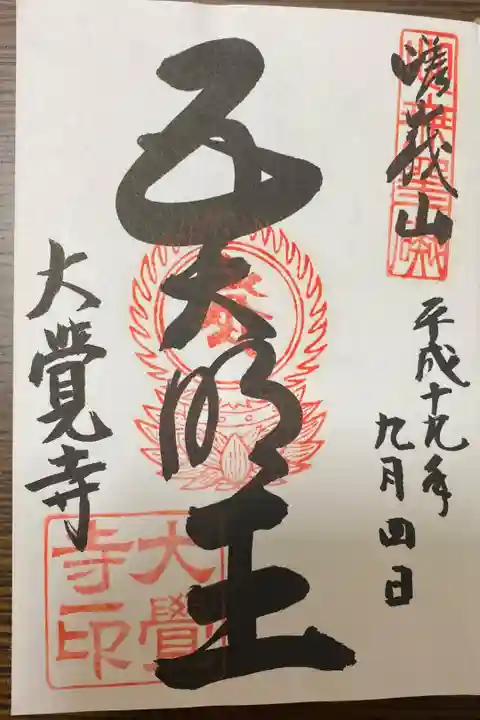 嵯峨山
平成十九年
九月四日
五大明王
大覺寺
大覺寺印